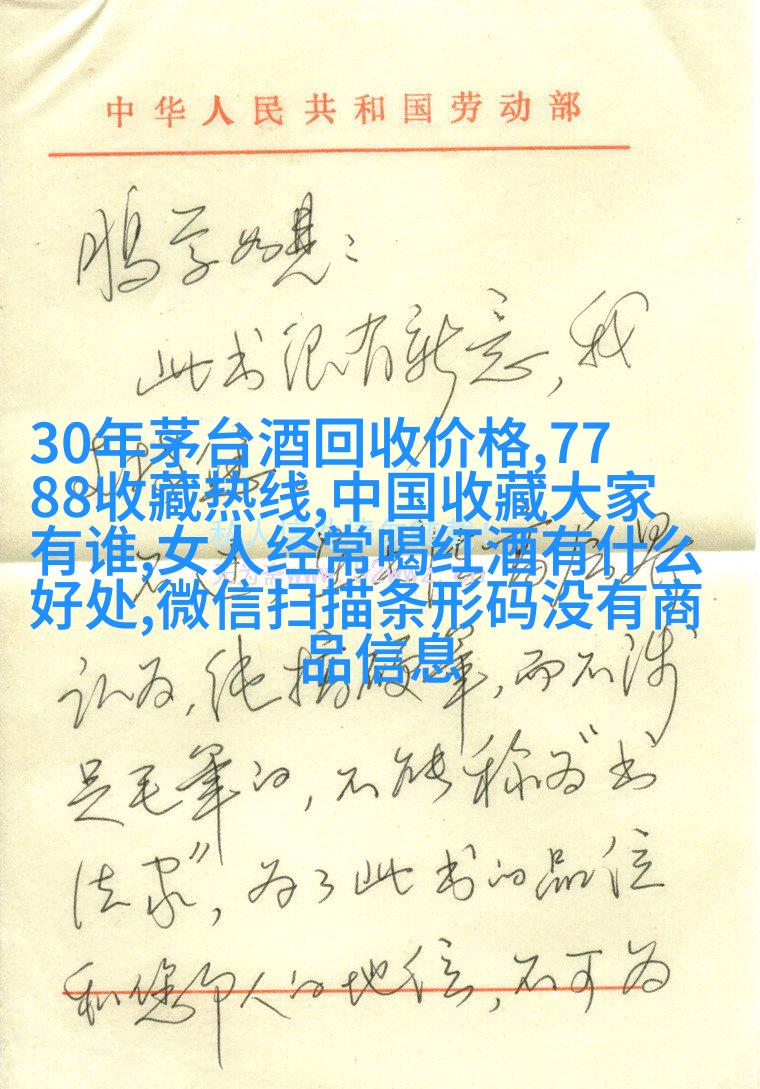 中华人民共和国劳动部
鹏学如晤：
此书很有新意，我
30年茅台酒回收价格,77
88收藏热线,中国收藏大家
有谁,女人经常喝红酒有什么
好处,微信扫描条形码没有商
品信息
认为，纯搞硬笔，而不涉
足毛笔的，不能称为“书
法家”，为了此书的品位
和您印人的地位，不可为